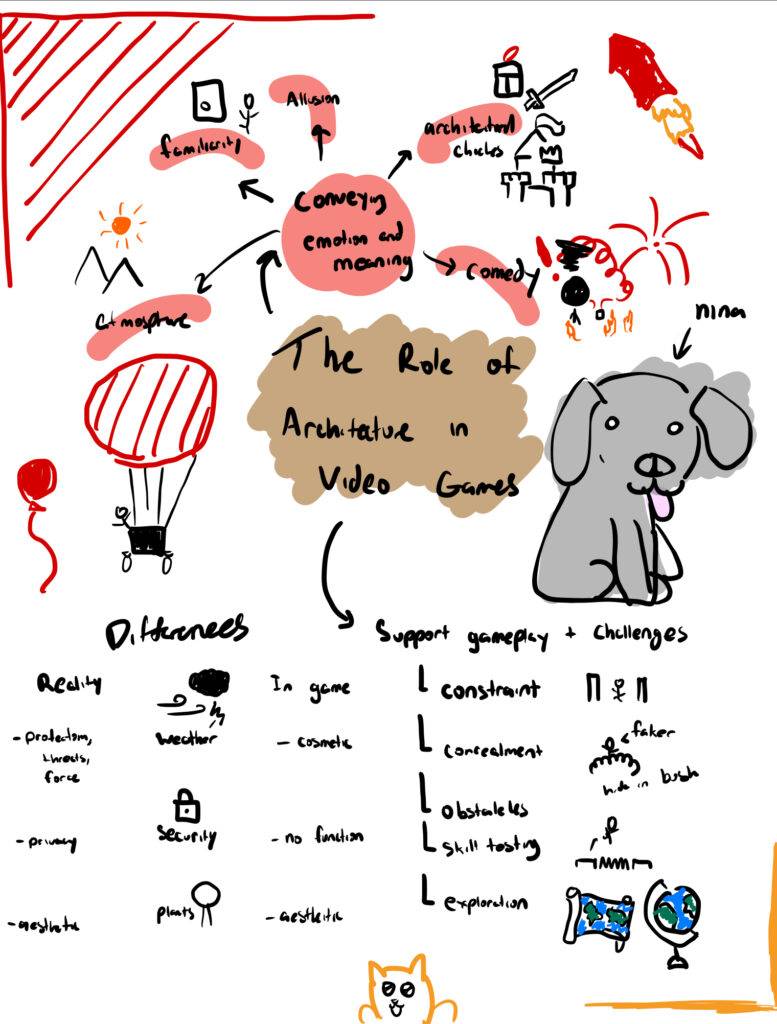 Allusion
familiarity
architectural
cliches
Conveying
emotion and
meaning
Comedy
atmosphere
nina
The Role of
Architecture in
Video Games
Differences
Support gameplay + challenges
Reality
In game
constraint
- protection,
threats,
force
weather
- cosmetic
concealment
faker
hide in bush
obstacles
- privacy
security
- no function
skill testing
- aesthetic
plants
- aesthetic
exploration